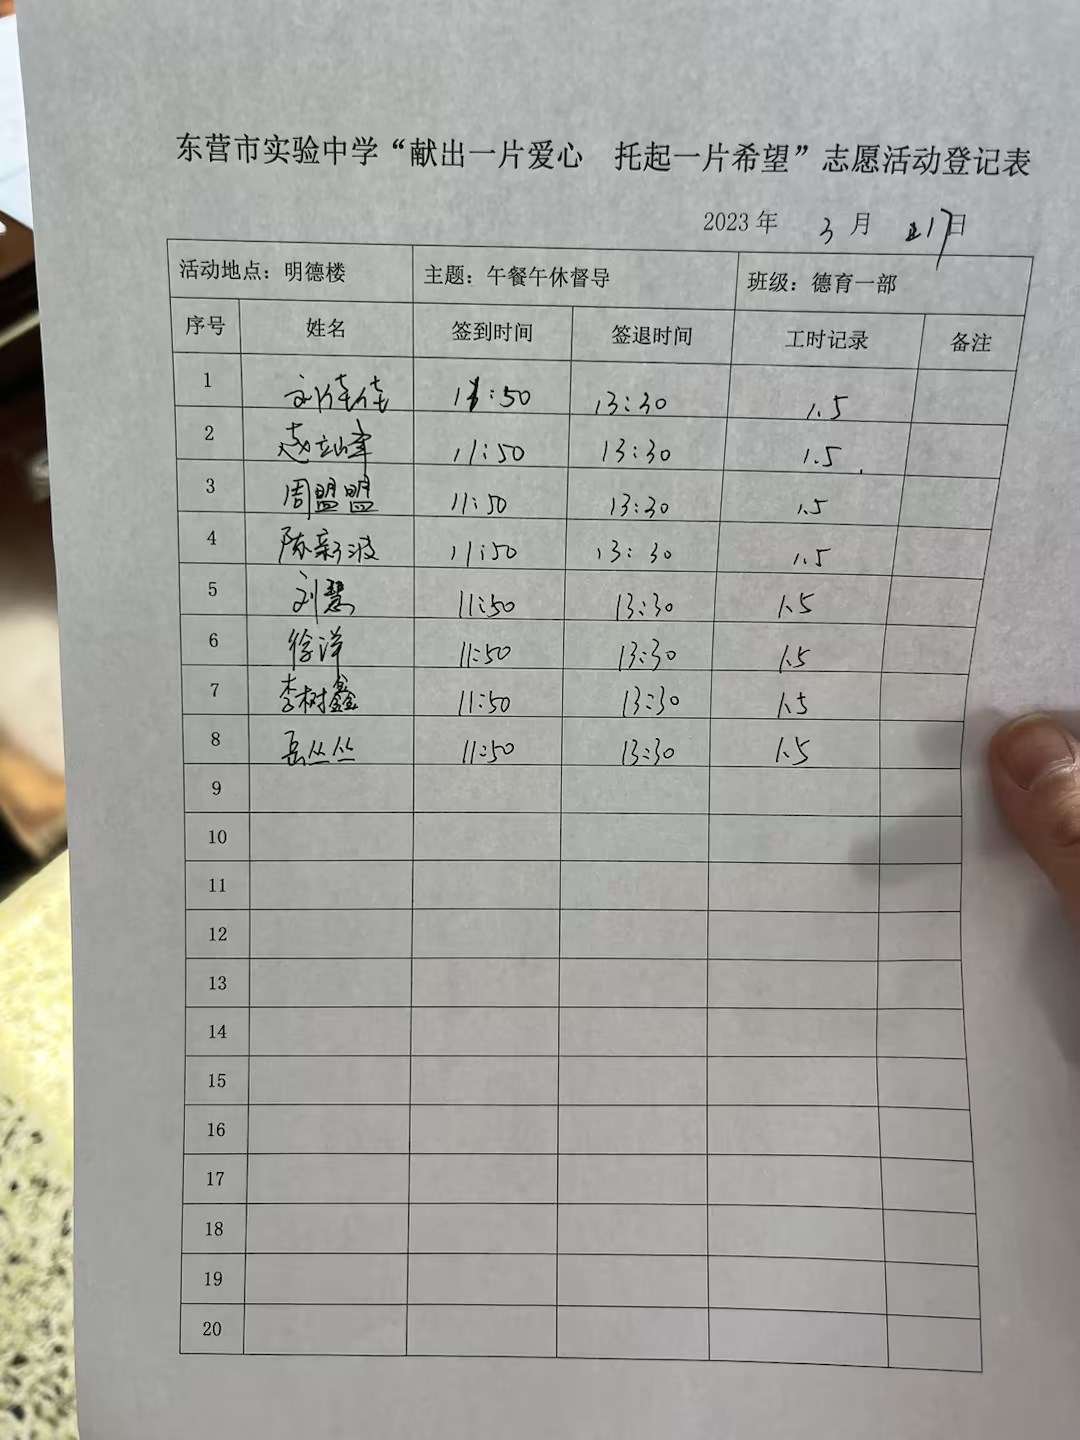 东营市实验中学“献出一片爱心 托起一片希望”志愿活动登记表
2023 年 3 月 17日
活动地点：明德楼 主题：午餐午休督导 班级：德育一部
序号 姓名 签到时间 签退时间 工时记录 备注
1 刘佳佳 11:50 13:30 1.5
2 赵立峰 11:50 13:30 1.5
3 周盟盟 11:50 13:30 1.5
4 陈新波 11:50 13:30 1.5
5 刘慧 11:50 13:30 1.5
6 徐洋 11:50 13:30 1.5
7 李树鑫 11:50 13:30 1.5
8 岳丛丛 11:50 13:30 1.5
9
10
11
12
13
14
15
16
17
18
19
20